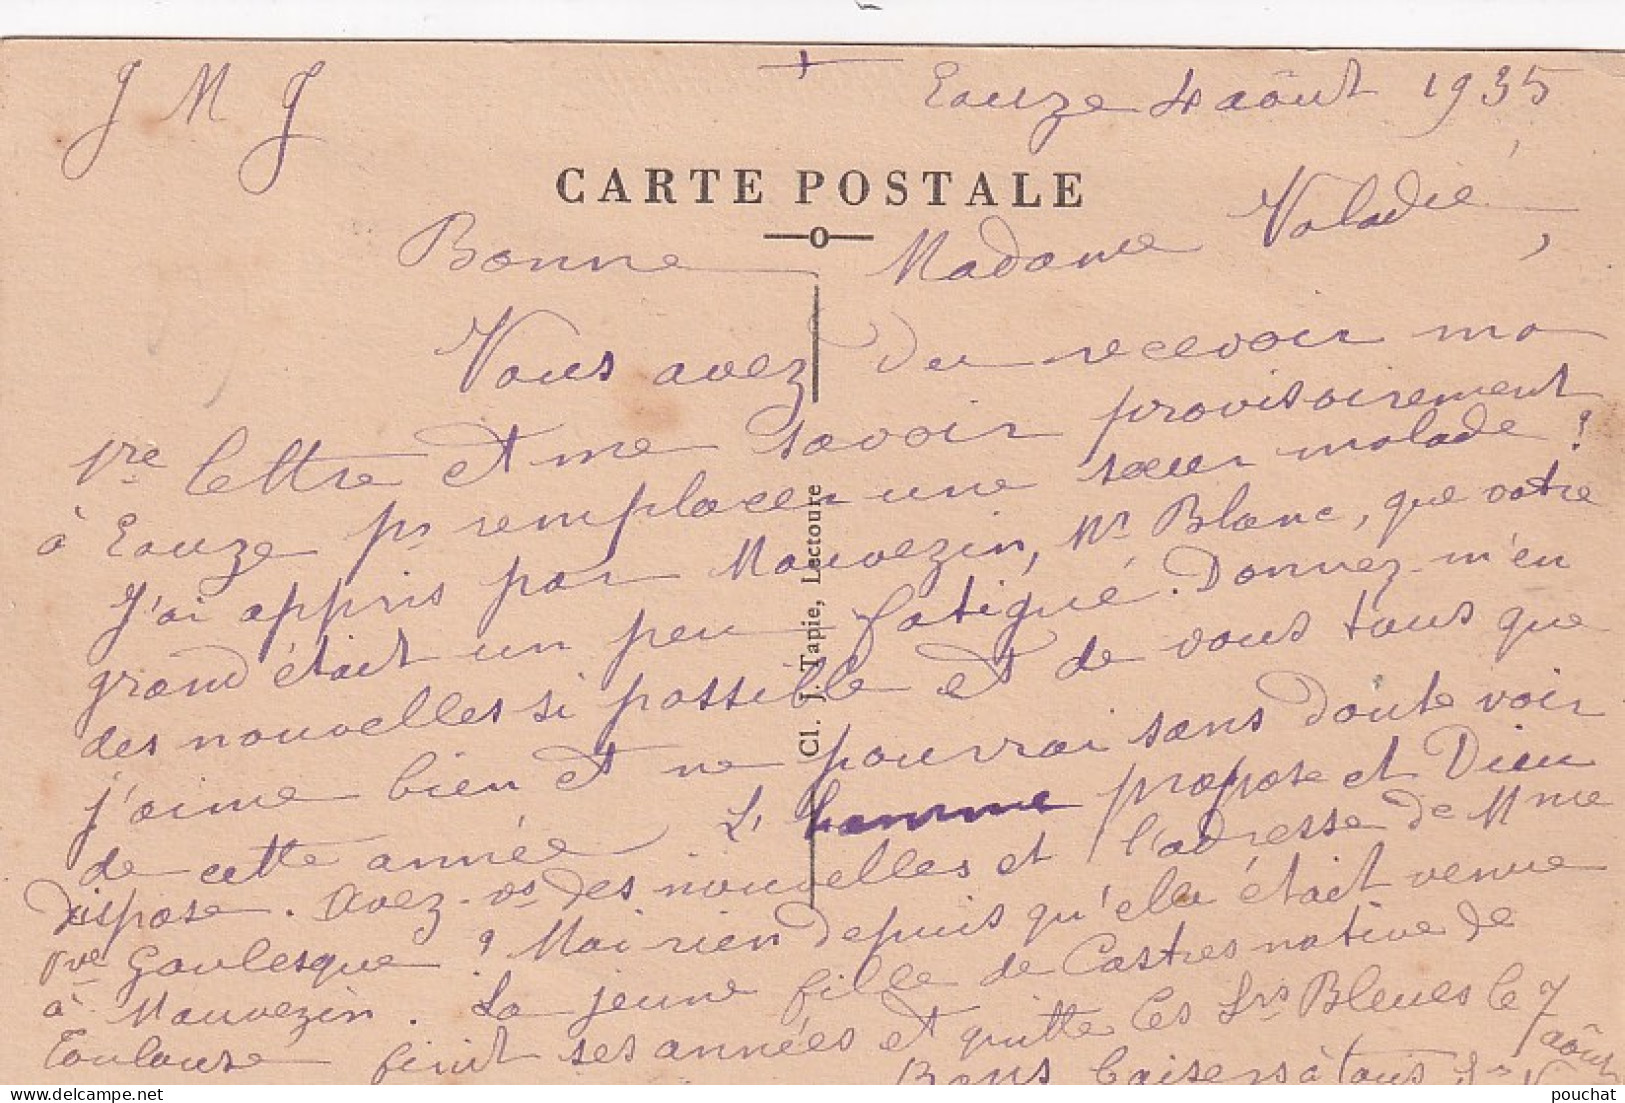 J M J
Eauze 4 août 1935
CARTE POSTALE
Bonne Madame Valadié,
Vous avez du recevoir ma
pre lettre et me savoir provisoirement
à Eauze pr remplacer une sœur malade ?
J'ai appris par Mauvezin, Mr Blanc, que votre
grand était un peu fatigué. Donnez-m'en
des nouvelles si possible et de vous tous que
j'aime bien et ne pourrai sans doute voir
de cette année. L'homme propose et Dieu
dispose. Avez-vs des nouvelles et l'adresse de Mme
Vve Gaulesque ? Moi rien depuis qu'elle était venue
à Mauvezin. La jeune fille de Castres native de
Toulouse finit ses années et quitte les Srs Bleues le 7
août
Bons baisers à tous Sr
Cl. J. Tapie, Lectoure
pouchat